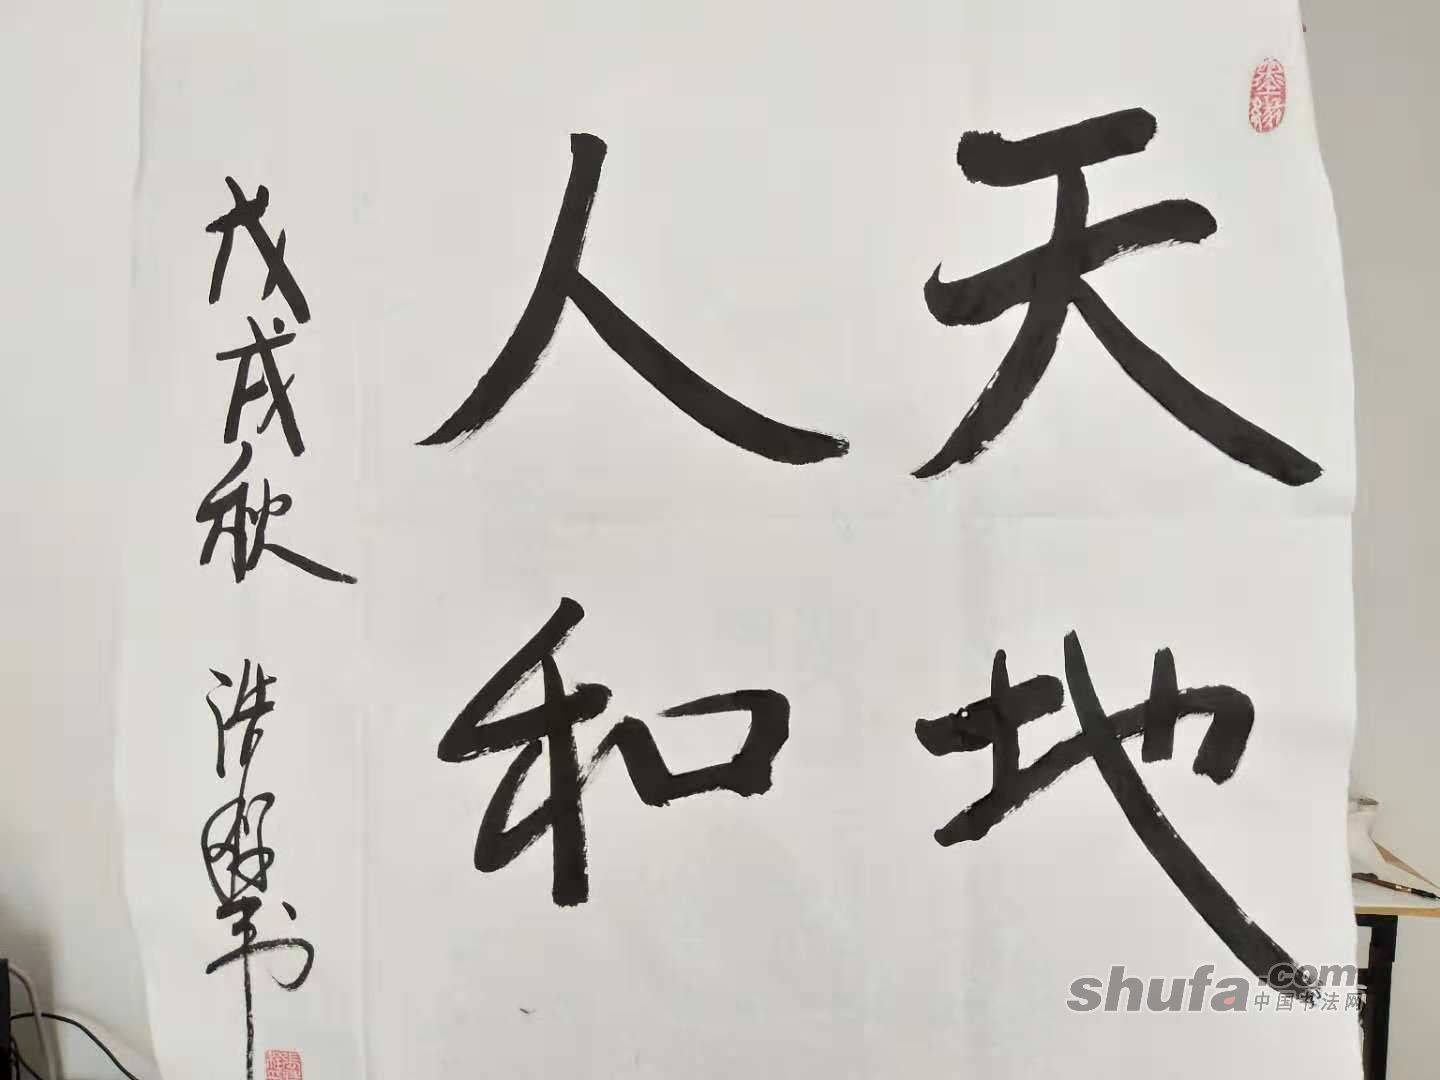 天地
人和
戊戌秋 浩
墨缘
shufa.com
中国书法网